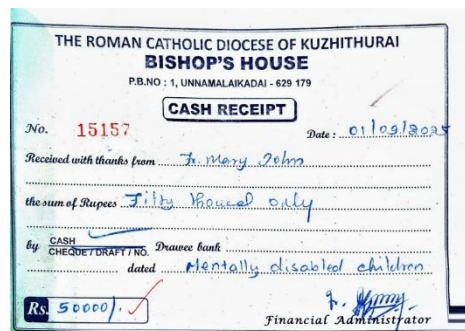 THE ROMAN CATHOLIC DIOCESE OF KUZHITHURAI
BISHOP'S HOUSE
P.B.NO : 1, UNNAMALAIKADAI - 629 179
CASH RECEIPT
No. 15157 Date : 01/09/2025
Received with thanks from Fr. Mary John
the sum of Rupees Fifty thousand only
by CASH
CHEQUE / DRAFT / NO. Drawee bank
dated Mentally disabled children
Rs. 50000/.
Financial Administrator